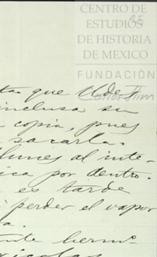 CENTRO DE
ESTUDIOS
DE HISTORIA
DE MEXICO
FUNDACIÓN
tas que Udes
inclusa su
copia, pues
sacarla.
lunes al inte-
ica por dentro.
es tarde
perder el vapor
a.
nte herm.º